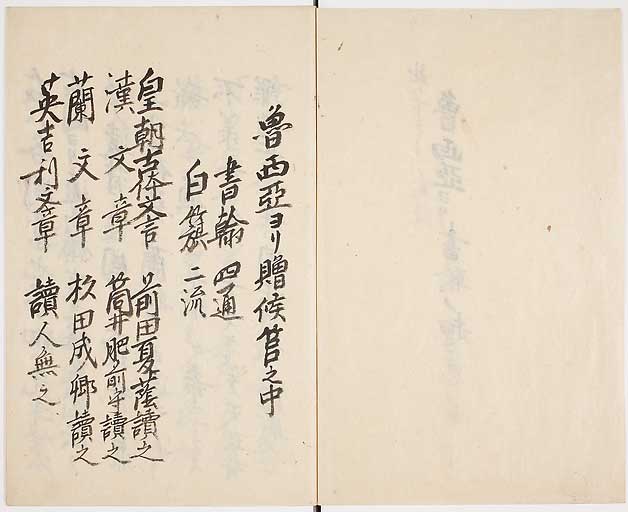 魯西亞ヨリ贈候筥之中
書翰 四通
白籏 二流
皇朝古体文言 前田夏蔭讀之
漢文章 筒井肥前守讀之
蘭文章 杉田成卿讀之
英吉利文章 讀人無之